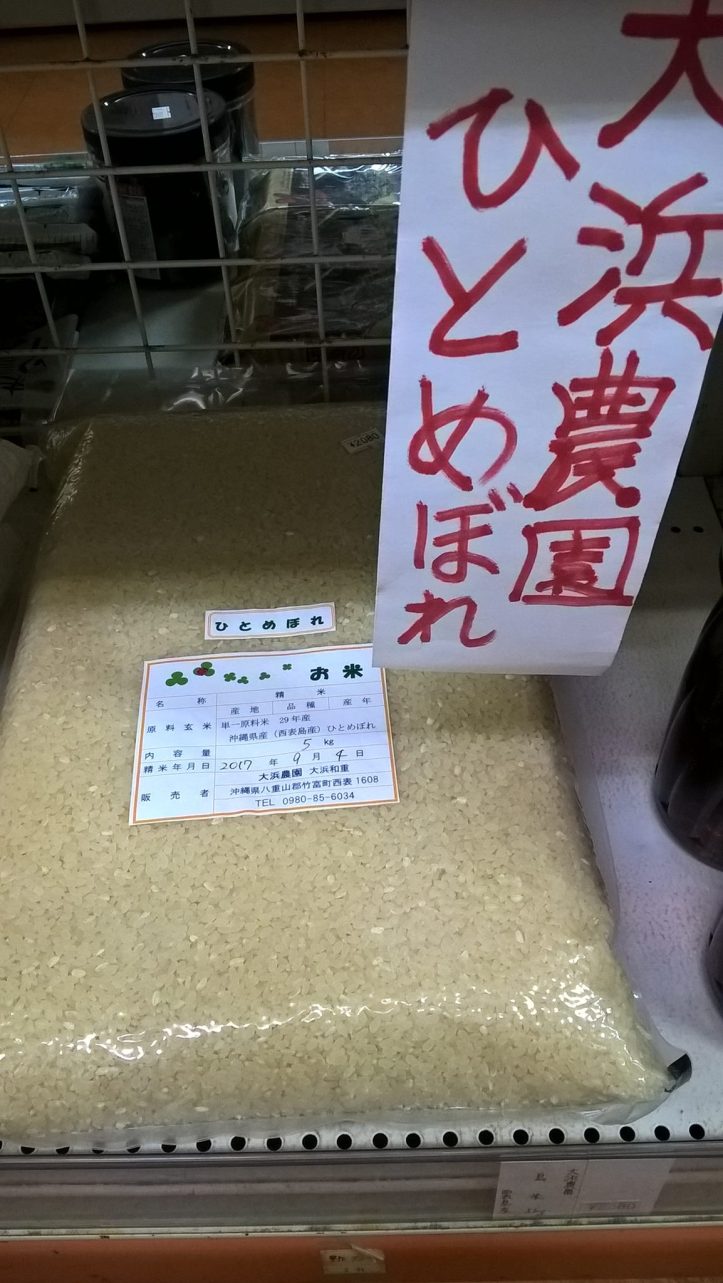 大浜農園
ひとめぼれ
¥2080
ひとめぼれ
お米
名称 精米
原料玄米 産地 品種 産年
単一原料米 29年産
沖縄県産（西表島産）ひとめぼれ
内容量 5kg
精米年月日 2017年9月4日
販売者 大浜農園 大浜和重
沖縄県八重山郡竹富町西表1608
TEL 0980-85-6034
大浜農園